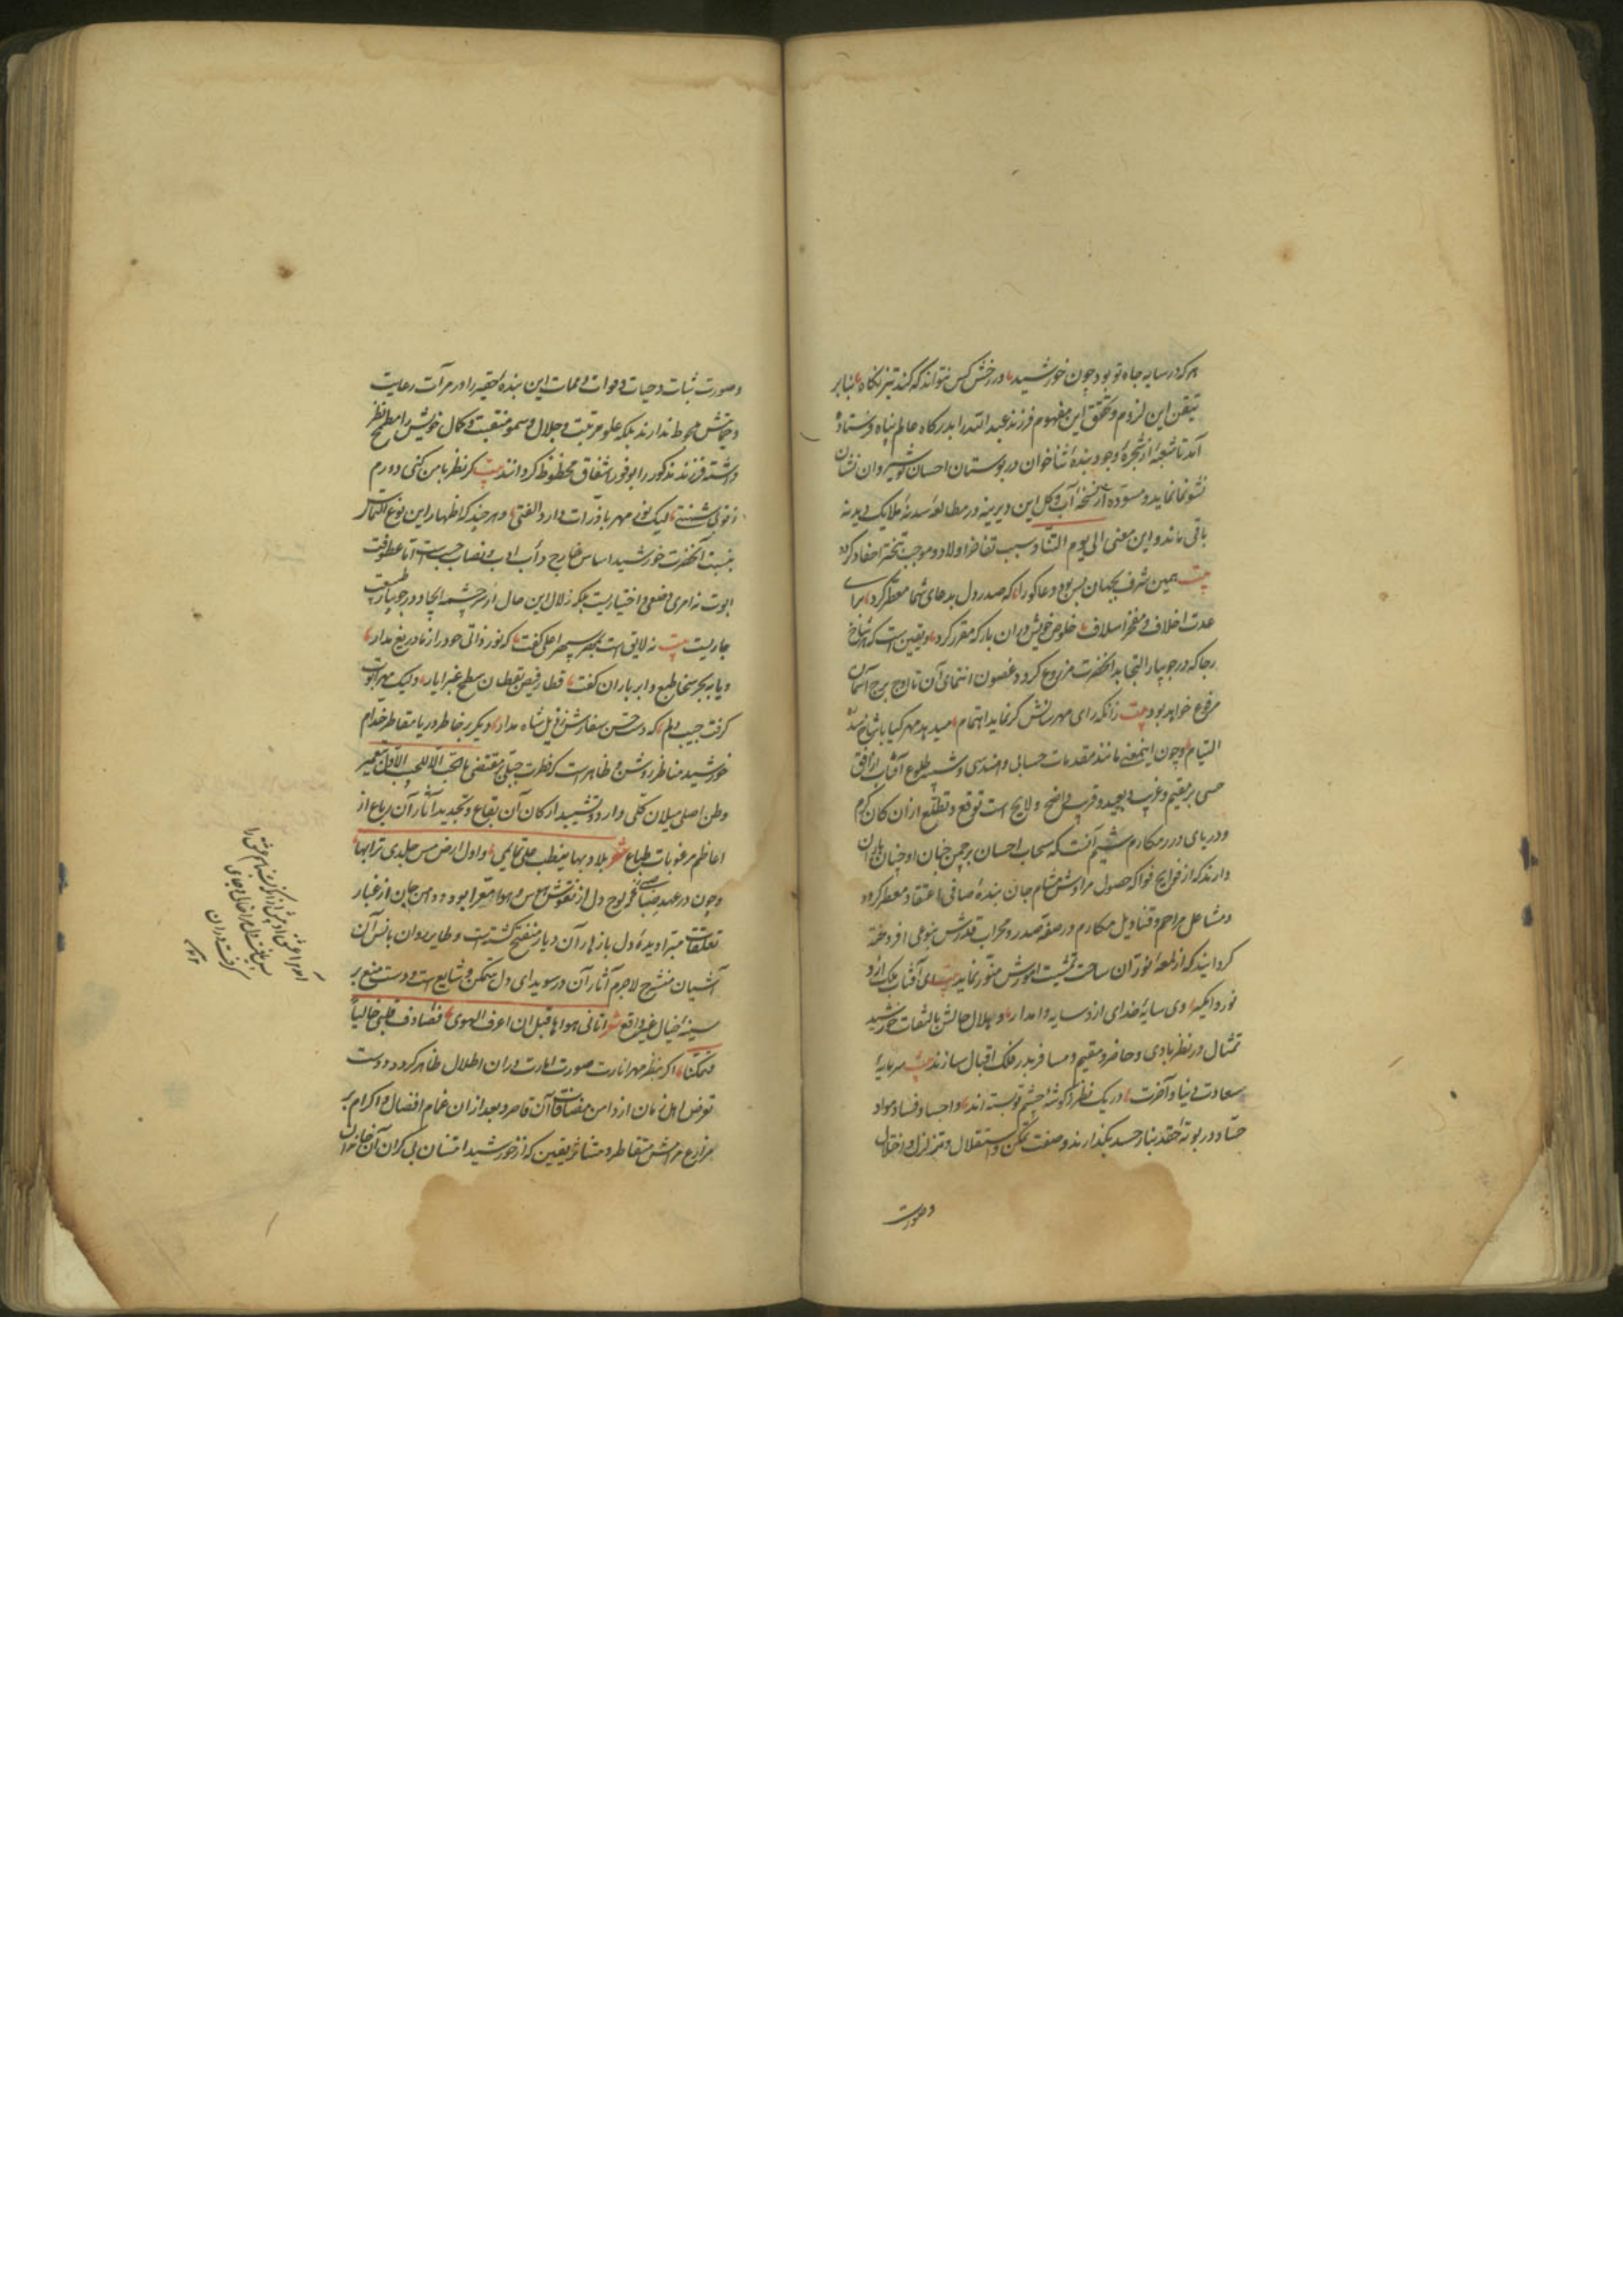 هر که در سایه جاه تو بود چون خورشید در رخش کس نتواند که کند تیز نگاه بنابر
تیقن این لزوم و تحقق این مفهوم فرزند عبد الله را بدرگاه عالم پناه فرستاده
آمد تا شعبهٔ از شجرهٔ وجود بندهٔ ثناخوان در بوستان احسان نوشیروان نشان
نشو نما نماید و مسودهٔ از نسخهٔ آب و گل این دیرینه در مطالعهٔ سدنهٔ ملایک دیدنه
باقی ماند و این معنی الی یوم التناد سبب تفاخر اولاد و موجب تبختر احفاد گردد
بیت همین شرف بجهان بس بود دعاگو را که صدر دل بدعای شما معطر کرد
عدت اخلاف و مفخر اسلاف خلوص خویش در ان بارگه مقرر کرد و یقین است که هر شاخ
رجا که در جویبار التجا بدانحضرت مزروع گردد و غصون انتمای آن تا اوج برج آسمان
مرفوع خواهد بود بیت زانکه رای مهرسانش گر نماید اهتمام میدهد مهر گیا با شاخ سدره
التیام و چون اینمعنی مانند مقدمات حسابی و هندسی و شبیه طلوع آفتاب از افق
حسی بر مقیم و غریب و بعید و قریب واضح و لایح است توقع و تطلع از ان کان کرم
و دریای درر مکارم شیم آنست که سحاب احسان بر چمن جنان او چنان باران
دارند که از فوایح فواکه حصول مرادش مشام جان بندهٔ صافی اعتقاد معطر گردد
و مشاعل مراحم و قنادیل مکارم در صفهٔ صدر و محراب قدرش بنوعی افروخته
گردانید که از لمعهٔ انوار آن ساحت تمشیت امورش منور نماید بیت ای آفتاب ملک ازو
نور وا مگیر وی سایهٔ خدای ازو سایه وا مدار و هلال حالش بالتفات خورشید
تمثال در نظر بادی و حاضر و مقیم و مسافر بدر فلک اقبال سازند بیت سرمایهٔ
سعادت دنیا و آخرت در یک نظر بگوشهٔ چشم تو بسته اند و اجساد فساد مواد
حساد در بوتهٔ حقد بنار حسد بگدازند و صفت تمکن و استقلال و تزلزل و اختلال
وصورت
و صورت ثبات و حیات و فوات و ممات این بندهٔ حقیر را در مرآت رعایت
و حمایتش محوط ندارند بلکه علو مرتبت و جلال و سمو منقبت و کمال خویش را مطمح نظر
داشته فرزند مذکور را بوفور اشفاق محظوظ گردانند بیت گر نظر با من کنی دورم
لیک نور مهر با ذرات دارد الفتی و هر چند که اظهار این نوع التماس
بنسبت آنحضرت خورشید اساس خارج دأب ادب و نصاب حسب است اما عطوفت
ابوت نه امری وضعی و اختیاریست بلکه زلال این حال از سرچشمه ایجاد در جویبار طبیعت
جاریست بیت نه لایق است بمهر سپهر اعلی گفت که نور ذاتی خود را ز ما دریغ مدار
و یا به بحر سخا طبع و ابر باران گفت قطار فیض بقطان سطح غبرا بار ولیک مهر ابوت
گرفت جیب دلم که دست سفارش ز ذیل شاه مدار دیگر بر خاطر دریا مقاطر خدام
خورشید مناظر روشن و ظاهر است که فطرت جبلی بمقتضی ما الحب الا للحبیب الاول بتعمیر
وطن اصلی میلان کلی دارد و تشیید ارکان آن بقاع و تجدید آثار آن رباع از
اعاظم مرغوبات طباع شعر بلاد بها نیطت علی تمایمی و اول ارض مس جلدی ترابها
و چون در عهد صبا که لوح دل از نقوش هوس و هوا معرا بود و دامن جان از غبار
تعلقات مبرا دیدهٔ دل بازهار آن دیار منفتح گشته است و طایر روان بانس آن
آشیان منشرح لاجرم آثار آن در سویدای دل متمکن و شایع است و دست منع بر
سینهٔ خیال غیر واقع شعر اتانی هواها قبل ان اعرف الهوی فصادف قلبی خالیا
فتمکنا اگر بنظر مهر انارت صورت امارت در ان اطلال ظاهر گردد و دست
تعرض اهل زمان از دامن مضافات آن قاصر و بعد از ان غمام افضال و اکرام بر
مزارع مرامش متقاطر و متناثر یقین که از خورشید امتنان بی کران آن